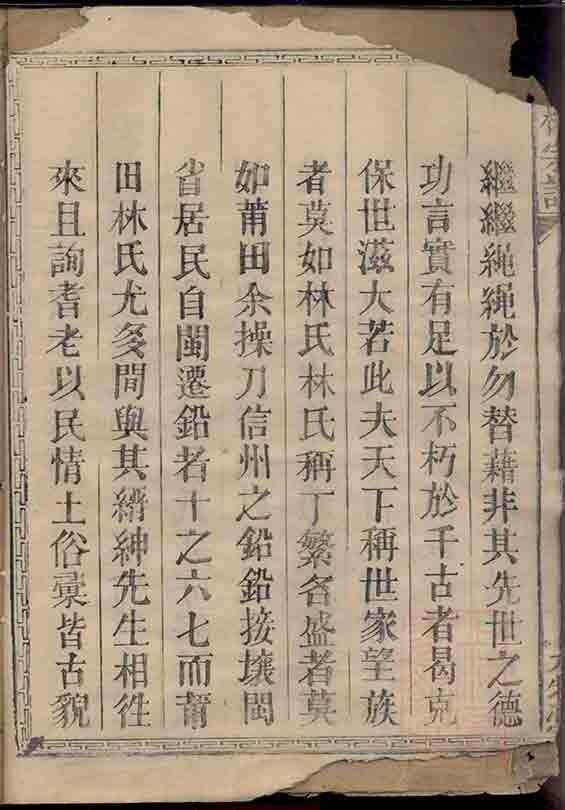 繼繼繩繩於勿替藉非其先世之德
功言實有足以不朽於千古者曷克
保世滋大若此夫天下稱世家望族
者莫如林氏林氏稱丁繁名盛者莫
如莆田余操刀信州之鉛鉛接壤閩
省居民自閩遷鉛者十之六七而莆
田林氏尤多間與其縉紳先生相徃
來且詢耆老以民情土俗彚皆古貌